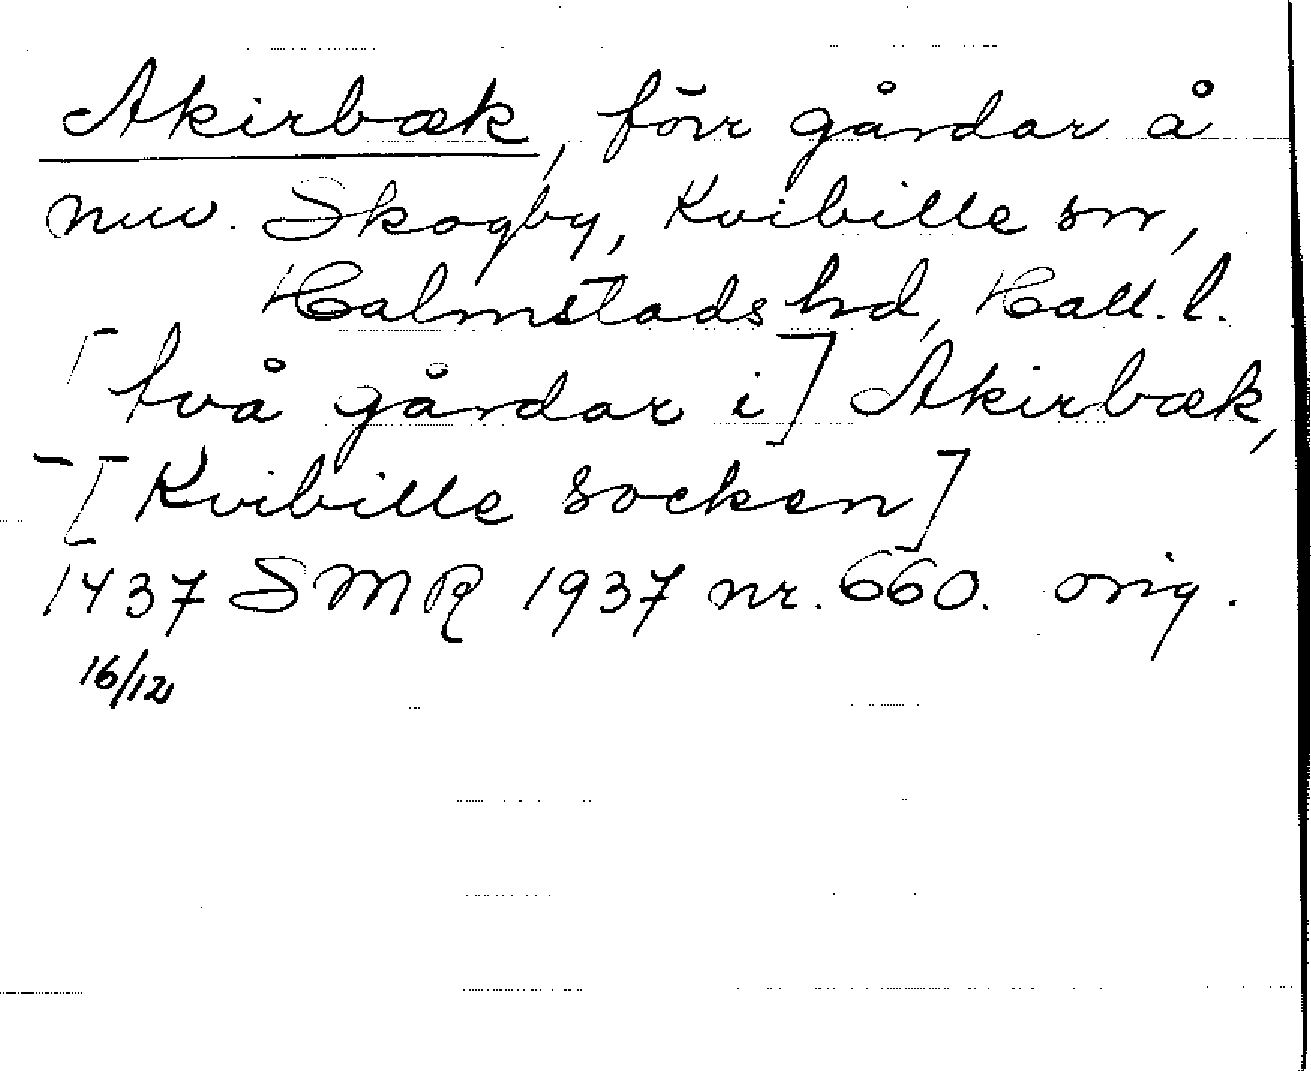 Akirbæk, förr gårdar å
nuv. Skogby, Kvibille sn,
Halmstads hd, Hall. l.
[två gårdar i] Akirbæk,
- [Kvibille socken]
1437 SMR 1937 nr. 660. orig.
16/12